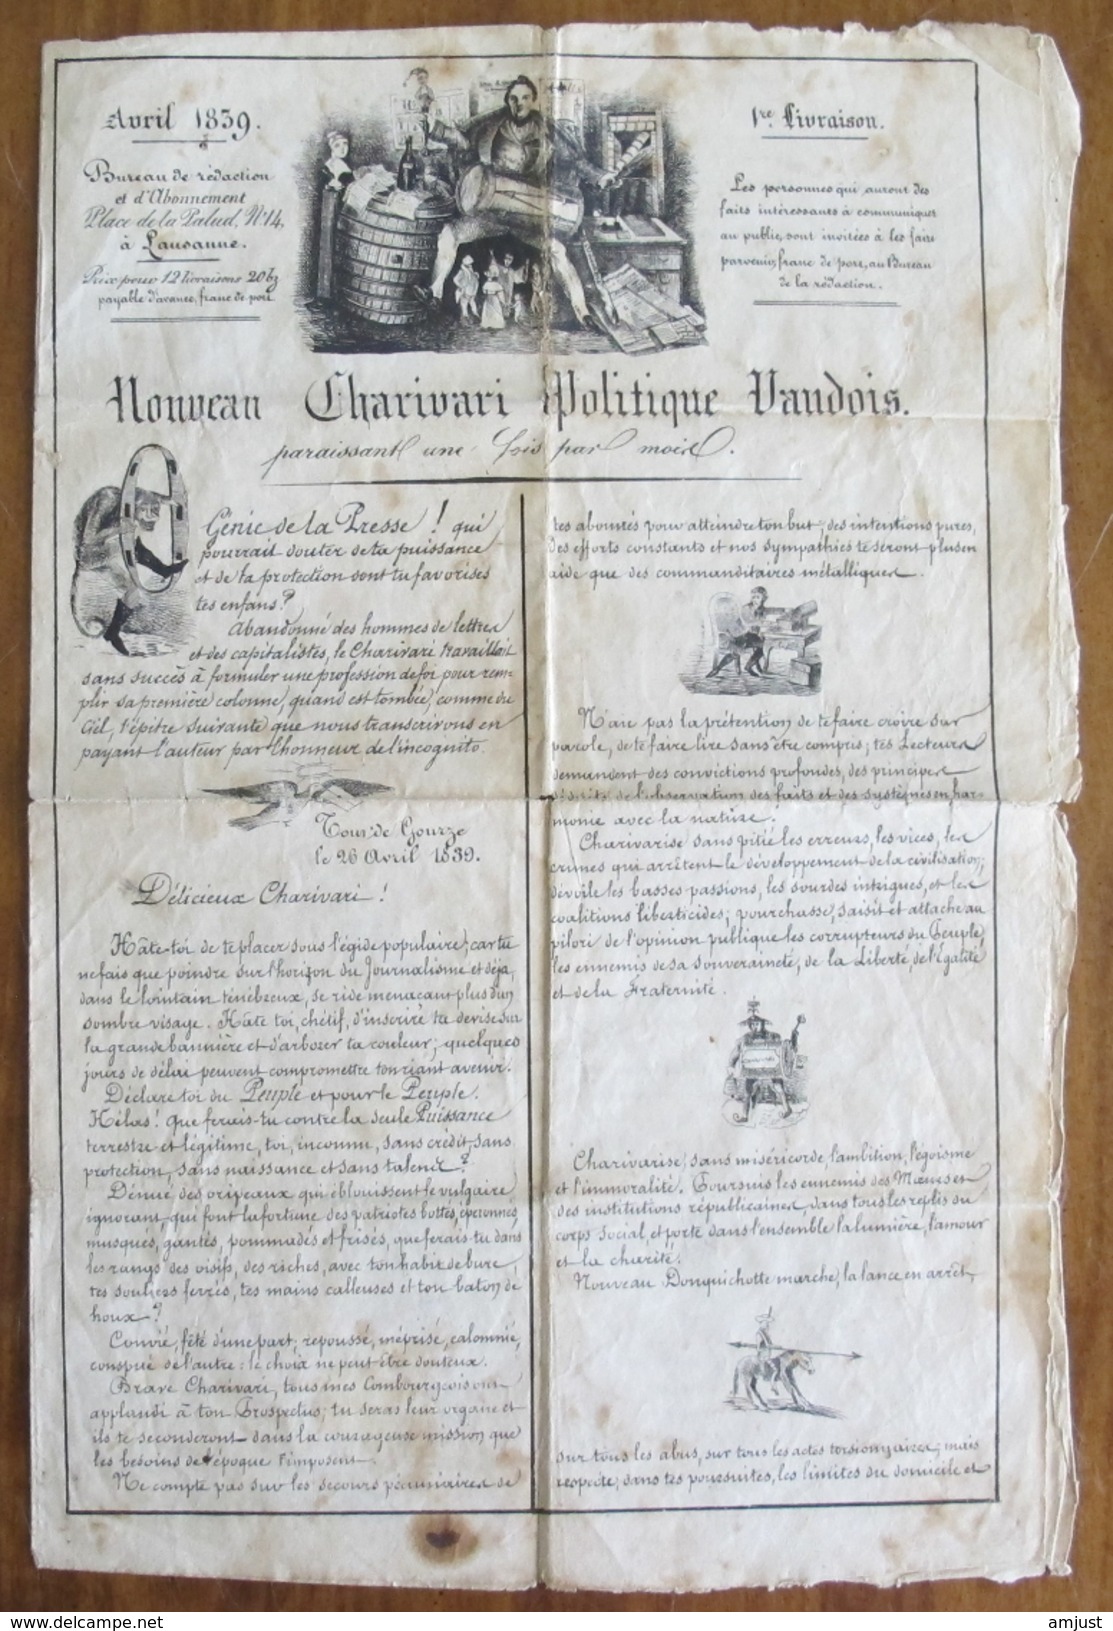 Avril 1839.
Bureau de rédaction
et d'Abonnement
Place de la Palud, N°14,
à Lausanne.
Prix pour 12 livraisons 20 bz
payable d'avance, franc de port
1re Livraison.
Les personnes qui auront des
faits intéressants à communiquer
au public, sont invitées à les faire
parvenir, franc de port, au Bureau
de la rédaction.
Nouveau Charivari Politique Vaudois.
paraissant une fois par mois.
Génie de la Presse ! qui
pourrait douter de ta puissance
et de ta protection dont tu favorises
tes enfans ?
Abandonné des hommes de lettres
et des capitalistes, le Charivari travaillait
sans succès à formuler une profession de foi pour rem-
plir sa première colonne, quand est tombée, comme du
Ciel, l'épitre suivante que nous transcrivons en
payant l'auteur par l'honneur de l'incognito.
Tour de Gourze
le 26 Avril 1839.
Délicieux Charivari !
Hâte-toi de te placer sous l'égide populaire, car tu
ne fais que poindre sur l'horizon du Journalisme et déjà,
dans le lointain ténébreux, se ride menaçant plus d'un
sombre visage. Hâte toi, chétif, d'inscrire ta devise sur
la grande bannière et d'arborer ta couleur; quelques
jours de délai peuvent compromettre ton riant avenir.
Déclare toi du Peuple et pour le Peuple.
Hélas ! que ferais-tu contre la seule Puissance
terrestre et légitime, toi, inconnu, sans crédit, sans
protection, sans naissance et sans talent ?
Dénué des oripeaux qui éblouissent le vulgaire
ignorant, qui font la fortune des patriotes bottés, éperonnés,
musqués, gantés, pommadés et frisés, que ferais-tu dans
les rangs des oisifs, des riches, avec ton habit de bure,
tes souliers ferrés, tes mains calleuses et ton baton de
houx ?
Convié, fêté d'une part; repoussé, méprisé, calomnié,
conspué de l'autre : le choix ne peut être douteux.
Brave Charivari, tous mes Combourgeois ont
applaudi à ton Prospectus; tu seras leur organe et
ils te seconderont dans la courageuse mission que
les besoins de l'époque t'imposent.
Ne compte pas sur les secours pécuniaires de
tes abonnés pour atteindre ton but; des intentions pures,
des efforts constants et nos sympathies te seront plus en
aide que des commanditaires métalliques.
N'aie pas la prétention de te faire croire sur
parole, de te faire lire sans être compris; tes Lecteurs
demandent des convictions profondes, des principes
déduits de l'observation des faits et des systèmes en har-
monie avec la nature !
Charivarise sans pitié les erreurs, les vices, les
crimes qui arrêtent le développement de la civilisation;
dévoile les basses passions, les sourdes intrigues, et les
coalitions liberticides; pourchasse, saisit et attache au
pilori de l'opinion publique les corrupteurs du Peuple,
les ennemis de sa souveraineté, de la Liberté, de l'Egalité
et de la Fraternité.
Charivarise, sans miséricorde, l'ambition, l'égoïsme
et l'immoralité. Poursuis les ennemis des Mœurs et
des institutions républicaines, dans tous les replis du
corps social, et porte dans l'ensemble la lumière, l'amour
et la charité.
Nouveau Donquichotte marche, la lance en arrêt,
sur tous les abus, sur tous les actes torsionnaires; mais
respecte, dans tes poursuites, les limites du domicile et
amjust